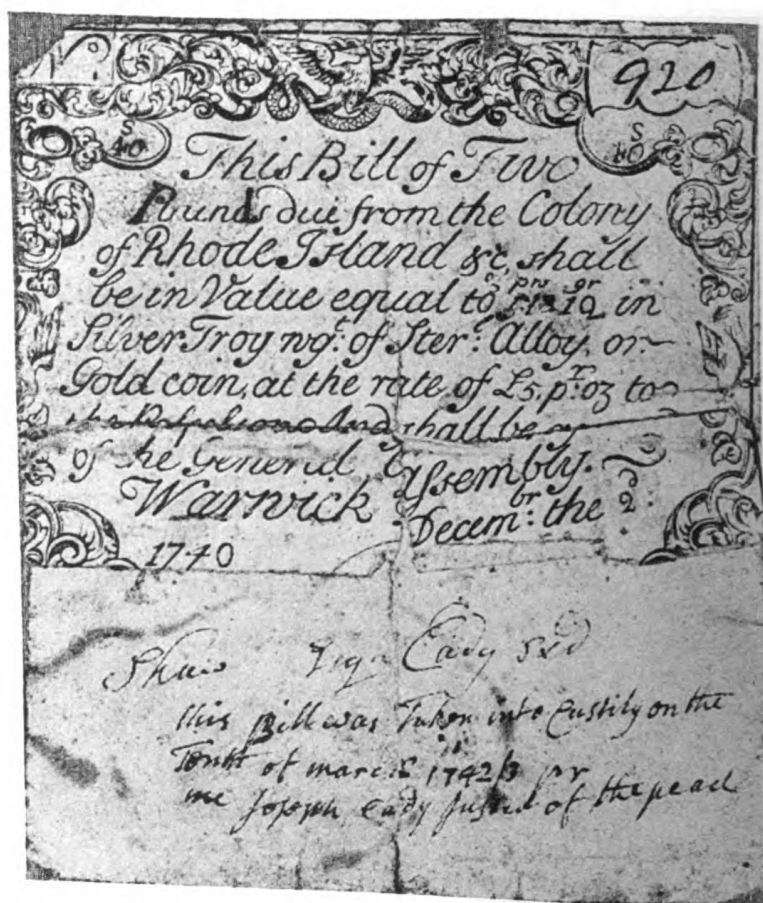 No
920
S
40
S
40
This Bill of Two
Pounds due from the Colony
of Rhode Island &c, shall
be in Value equal to in
Silver Troy wgt. of Ster: Alloy, or
Gold coin, at the rate of £5. pr. oz to
shall be
of he General Assembly.
Warwick Decembr: the 2d.
1740
Eady
this Bill was Taken into Custity on the
Tenth of march 1742/3 pr
me Joseph Eady Justis of the peace